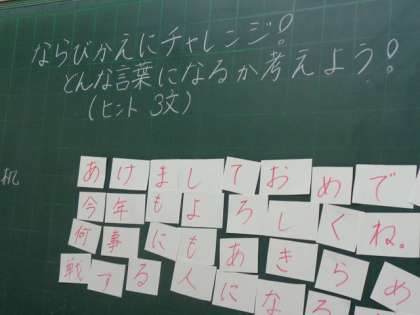 ならびかえにチャレンジ!
どんな言葉になるか考えよう!
(ヒント 3文)
机
あけましておめで
今年もよろしくね。
何事にもあきらめ
戦する人になる